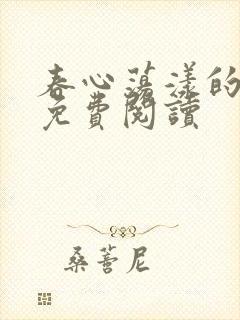 春心蕩漾的
免費閱讀
桑蕾尼